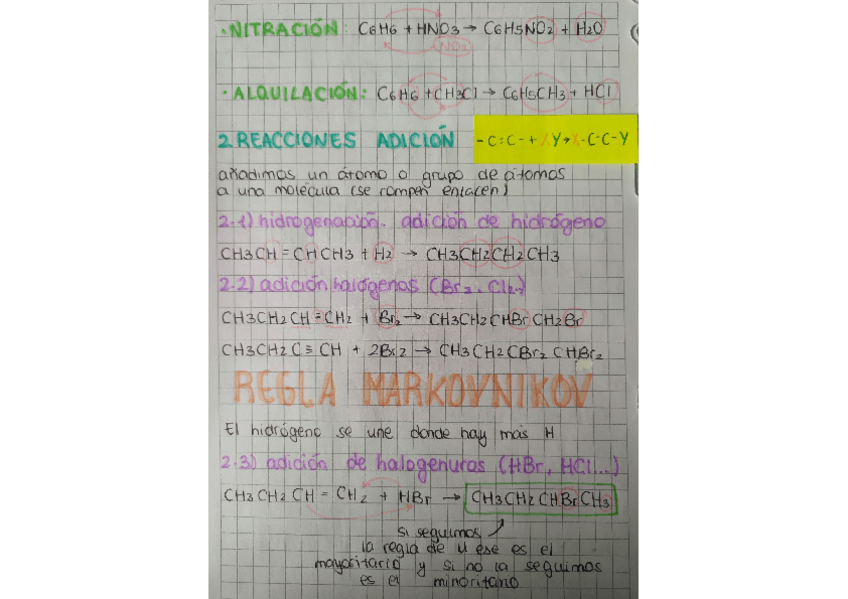 ·NITRACIÓN: C6H6 + HNO3 → C6H5NO2 + H2O
NO2
·ALQUILACIÓN: C6H6 + CH3Cl → C6H5CH3 + HCl
2. REACCIONES ADICIÓN -C=C- + XY → X-C-C-Y
añadimos un átomo o grupo de átomos
a una molécula (se rompen enlacen)
2.1) hidrogenación. adición de hidrógeno
CH3CH = CHCH3 + H2 → CH3CH2CH2CH3
2.2) adición halógenos (Br2, Cl2..)
CH3CH2CH = CH2 + Br2 → CH3CH2CHBrCH2Br
CH3CH2C ≡ CH + 2Br2 → CH3CH2CBr2CHBr2
REGLA MARKOVNIKOV
El hidrógeno se une donde hay mas H
2.3) adición de halogenuros (HBr, HCl...)
CH3CH2CH = CH2 + HBr → CH3CH2CHBrCH3
si seguimos
la regla de M ese es el
mayoritario y si no la seguimos
es el minoritario